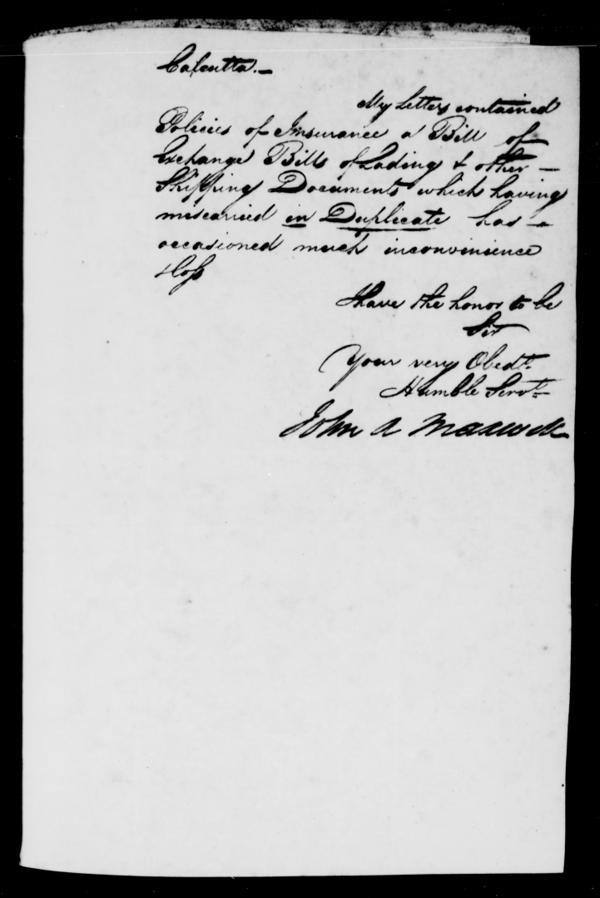 Calcutta.—
My Letters contained
Policies of Insurance a Bill of
Exchange Bills of Lading & other —
Shipping Documents which having
miscarried in Duplicate has —
occasioned much inconvenience
& loss
I have the honor to be
Sir
Your very Obedt.
Humble Servt.
John A